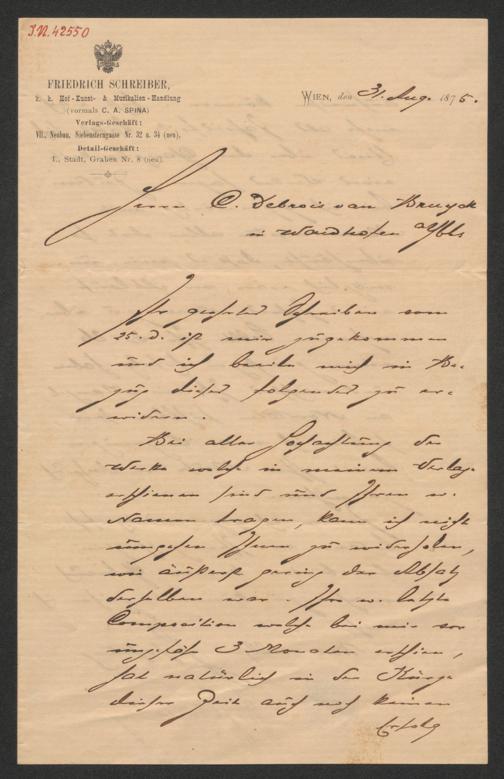 I.N. 42550
FRIEDRICH SCHREIBER,
k. k. Hof-Kunst- & Musikalien-Handlung
(vormals C. A. SPINA)
Verlags-Geschäft:
VII., Neubau, Siebensterngasse Nr. 32 u. 34 (neu),
Detail-Geschäft:
I., Stadt, Graben Nr. 8 (neu).
WIEN, den 31. Aug. 1875.
Herrn C. Debrois van Bruyck
in Waidhofen a/Ybbs
Ihr geehrtes Schreiben vom
25. d. ist mir zugekommen
und ich beeile mich in Be-
zug dieses folgendes zu er-
widern.
Bei aller Hochachtung der
Werke welche in meinem Verlag
erschienen sind und Ihren w.
Namen tragen, kann ich nicht
umgehen Ihnen zu wiederholen,
wie äußerst gering der Absatz
derselben war. Ihre w. letzte
Composition welche bei mir vor
ungefähr 3 Monaten erschien,
hat natürlich in der Kürze
dieser Zeit auch noch keinen
Erfolg